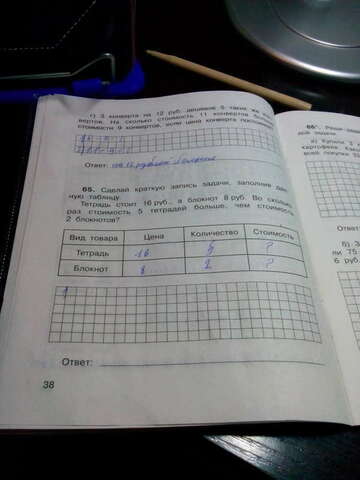 г) 3 конверта на 12 руб. дешевле 5 таких же кон-
вертов. На сколько стоимость 11 конвертов больше
стоимости 9 конвертов, если цена конверта
Ответ: на 12 рублей
65. Сделай краткую запись задачи, заполнив дан-
ную таблицу.
Тетрадь стоит 16 руб., а блокнот 8 руб. Во сколько
раз стоимость 5 тетрадей больше, чем стоимость
2 блокнотов?
Вид товара Цена Количество Стоимость
Тетрадь 16 5 ?
Блокнот 8 2 ?
1
Ответ:
38
66*. Реши
а) Купили
картофеля.
всей покупки
Ответ
б) З
ли 75
6 руб.